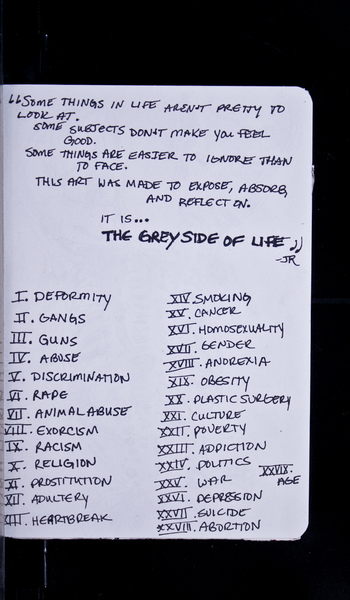 “SOME THINGS IN LIFE AREN'T PRETTY TO
LOOK AT.
SOME SUBJECTS DON'T MAKE YOU FEEL
GOOD.
SOME THINGS ARE EASIER TO IGNORE THAN
TO FACE.
THIS ART WAS MADE TO EXPOSE, ABSORB,
AND REFLECT ON.
IT IS...
THE GREY SIDE OF LIFE”
-JR
I. DEFORMITY
II. GANGS
III. GUNS
IV. ABUSE
V. DISCRIMINATION
VI. RAPE
VII. ANIMAL ABUSE
VIII. EXORCISM
IX. RACISM
X. RELIGION
XI. PROSTITUTION
XII. ADULTERY
XIII. HEARTBREAK
XIV. SMOKING
XV. CANCER
XVI. HOMOSEXUALITY
XVII. GENDER
XVIII. ANOREXIA
XIX. OBESITY
XX. PLASTIC SURGERY
XXI. CULTURE
XXII. POVERTY
XXIII. ADDICTION
XXIV. POLITICS
XXV. WAR
XXVI. DEPRESSION
XXVII. SUICIDE
XXVIII. ABORTION
XXVIX.
AGE